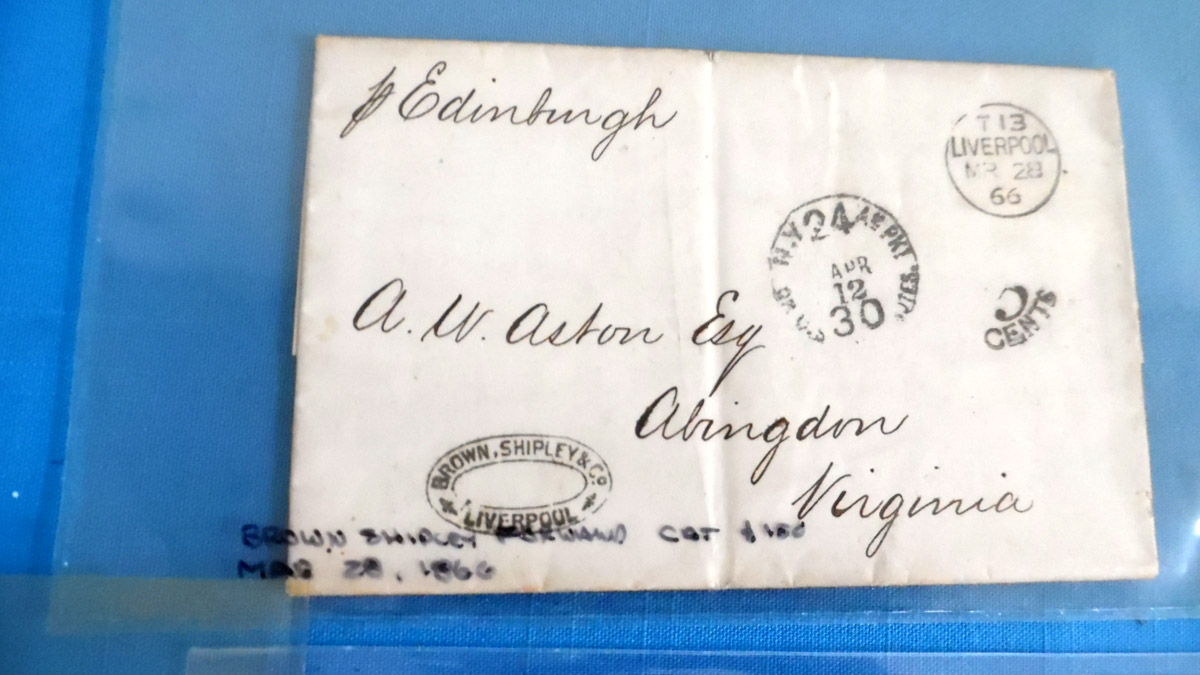 p Edinburgh
T 13
LIVERPOOL
MR 28
66
N.Y. 24 AM PKT
APR
12
OR US 30 NOTES
3
CENTS
A. W. Aston Esq
Abingdon
Virginia
BROWN, SHIPLEY & Co
LIVERPOOL
BROWN SHIPLEY FORWARD CAT $150
MAR 28, 1866